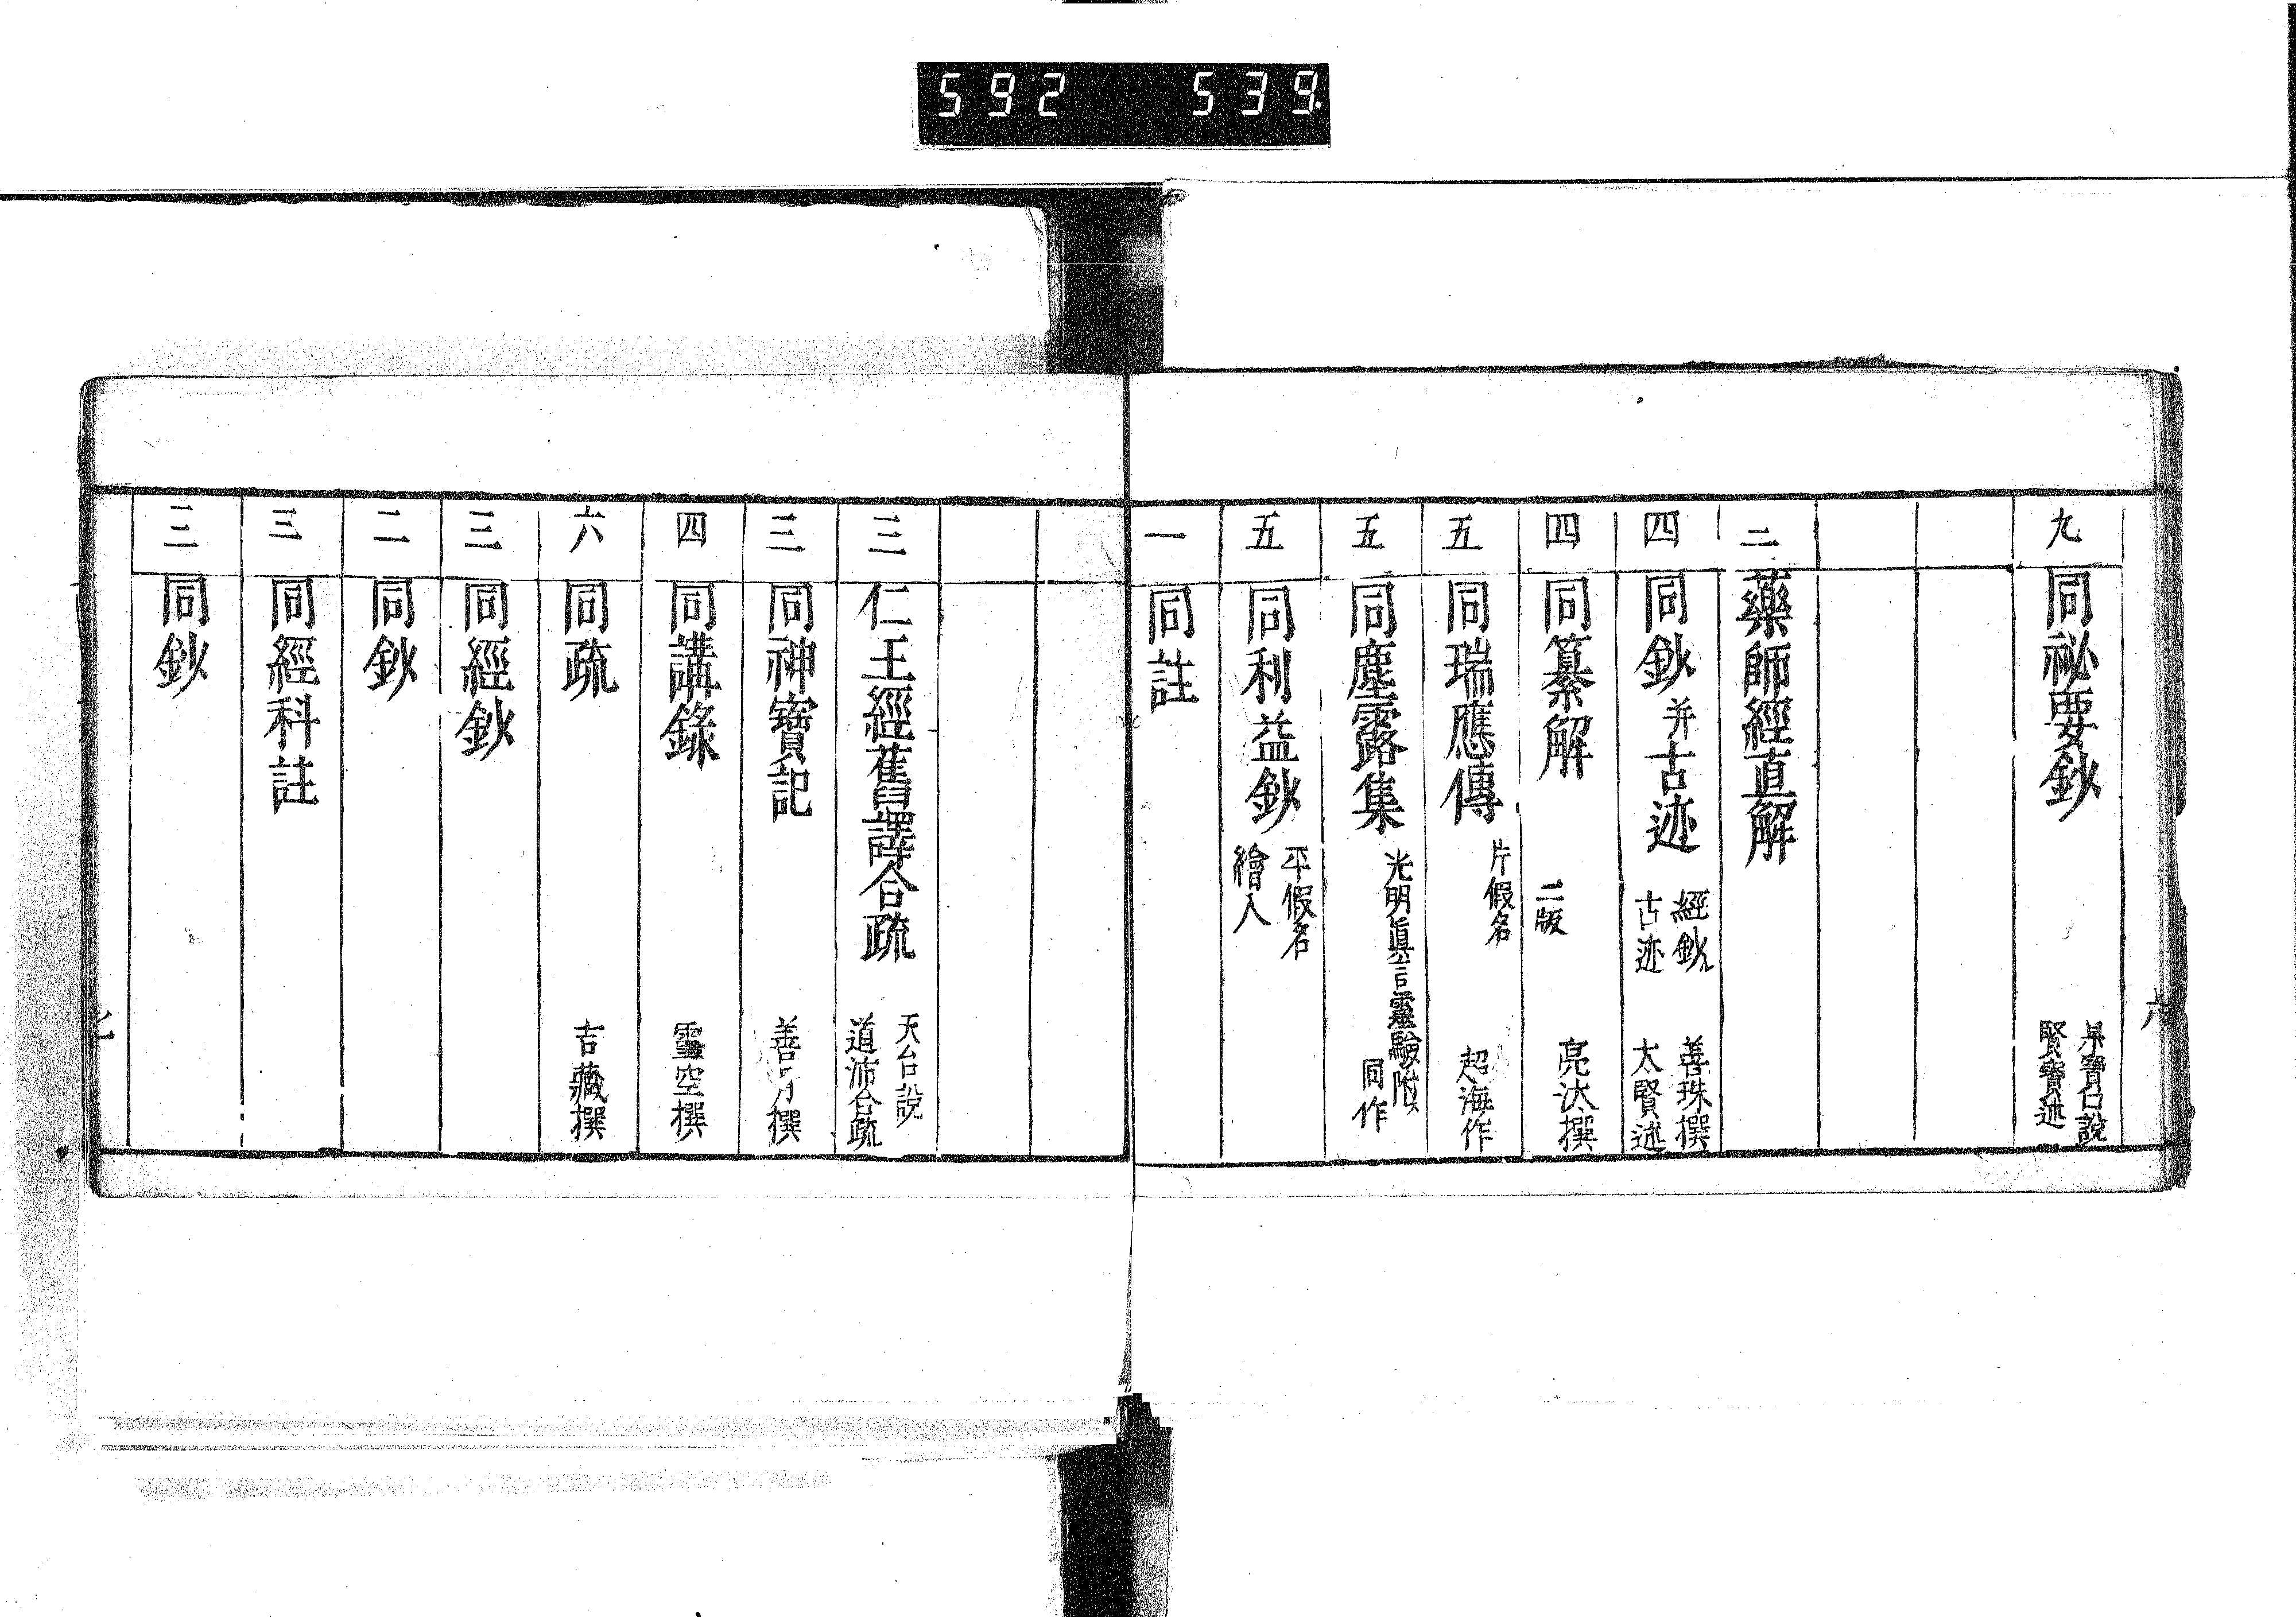 592 539.
六
九 同祕要鈔 杲寶口說 賢寶述
二 藥師經直解
四 同鈔 并古迹 經鈔 善珠撰 古迹 太賢述
四 同纂解 二版 亮汰撰
五 同瑞應傳 片假名 超海作
五 同塵露集 光明眞言靈驗附 同作
五 同利益鈔 平假名 繪入
一 同註
三 仁王經舊譯合疏 天台說 道沛合疏
三 同神寶記 善月撰
四 同講錄 靈空撰
六 同疏 吉藏撰
三 同經鈔
二 同鈔
三 同經科註
三 同鈔